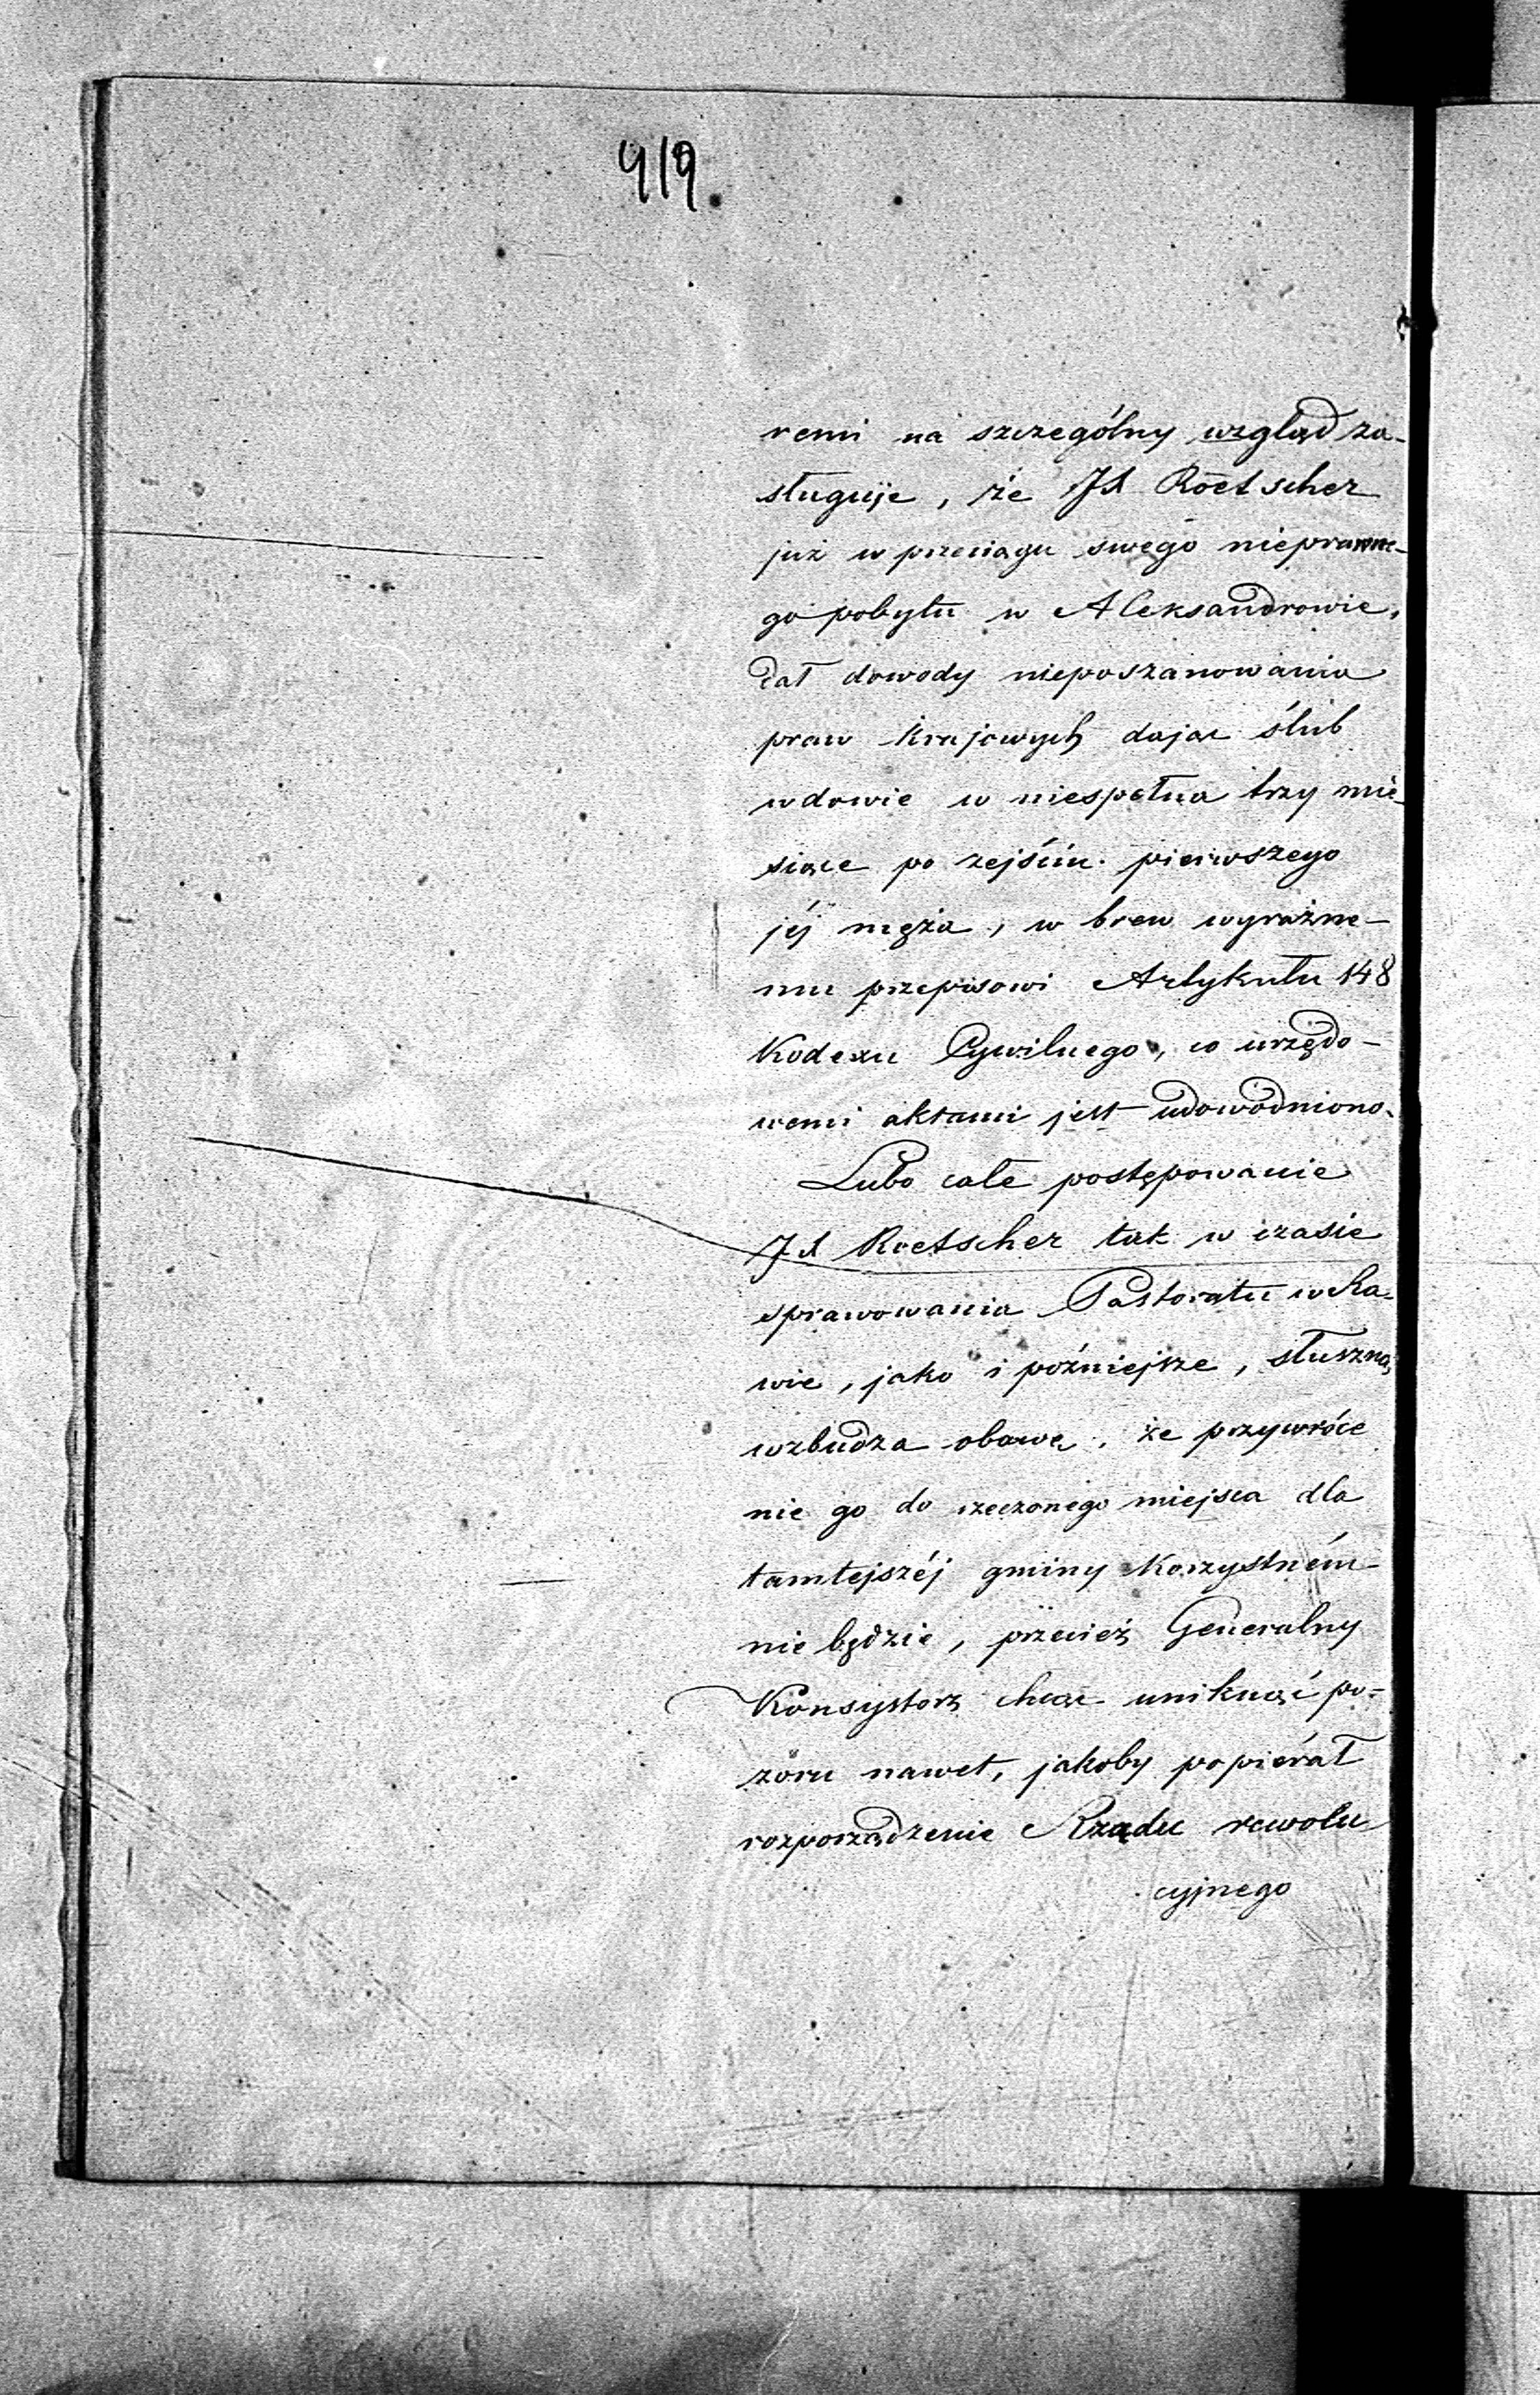 419.
remi na szczególny wzgląd za-
sługuje, że JX Roetscher
już w przeciągu swego niepra­wne-
go pobytu w Aleksandrowie,
dał dowody nieposzanowania
praw krajowych dając ślub
wdowie w niespełna trzy mie-
siące po zejściu pierwszego
jéj męża, w brew wyraźne-
mu przepisowi Artykułu 148
Kodexu Cywilnego, co urzędo-
wemi aktami jest udowodniono.
Lubo całe postępowanie
JX Roetscher tak w czasie
sprawowania Pastoratu w Ra-
wie, jako i późniejsze, słuszną
wzbudza obawę, że przywróce
nie go do rzeczonego miejsca dla
tamtejszéj gminy korzystném
nie będzie, przecież Generalny
Konsystorz chcąc uniknąć po-
zoru nawet, jakoby popiérał
rozporządzenie Rządu rewolu
cyjnego